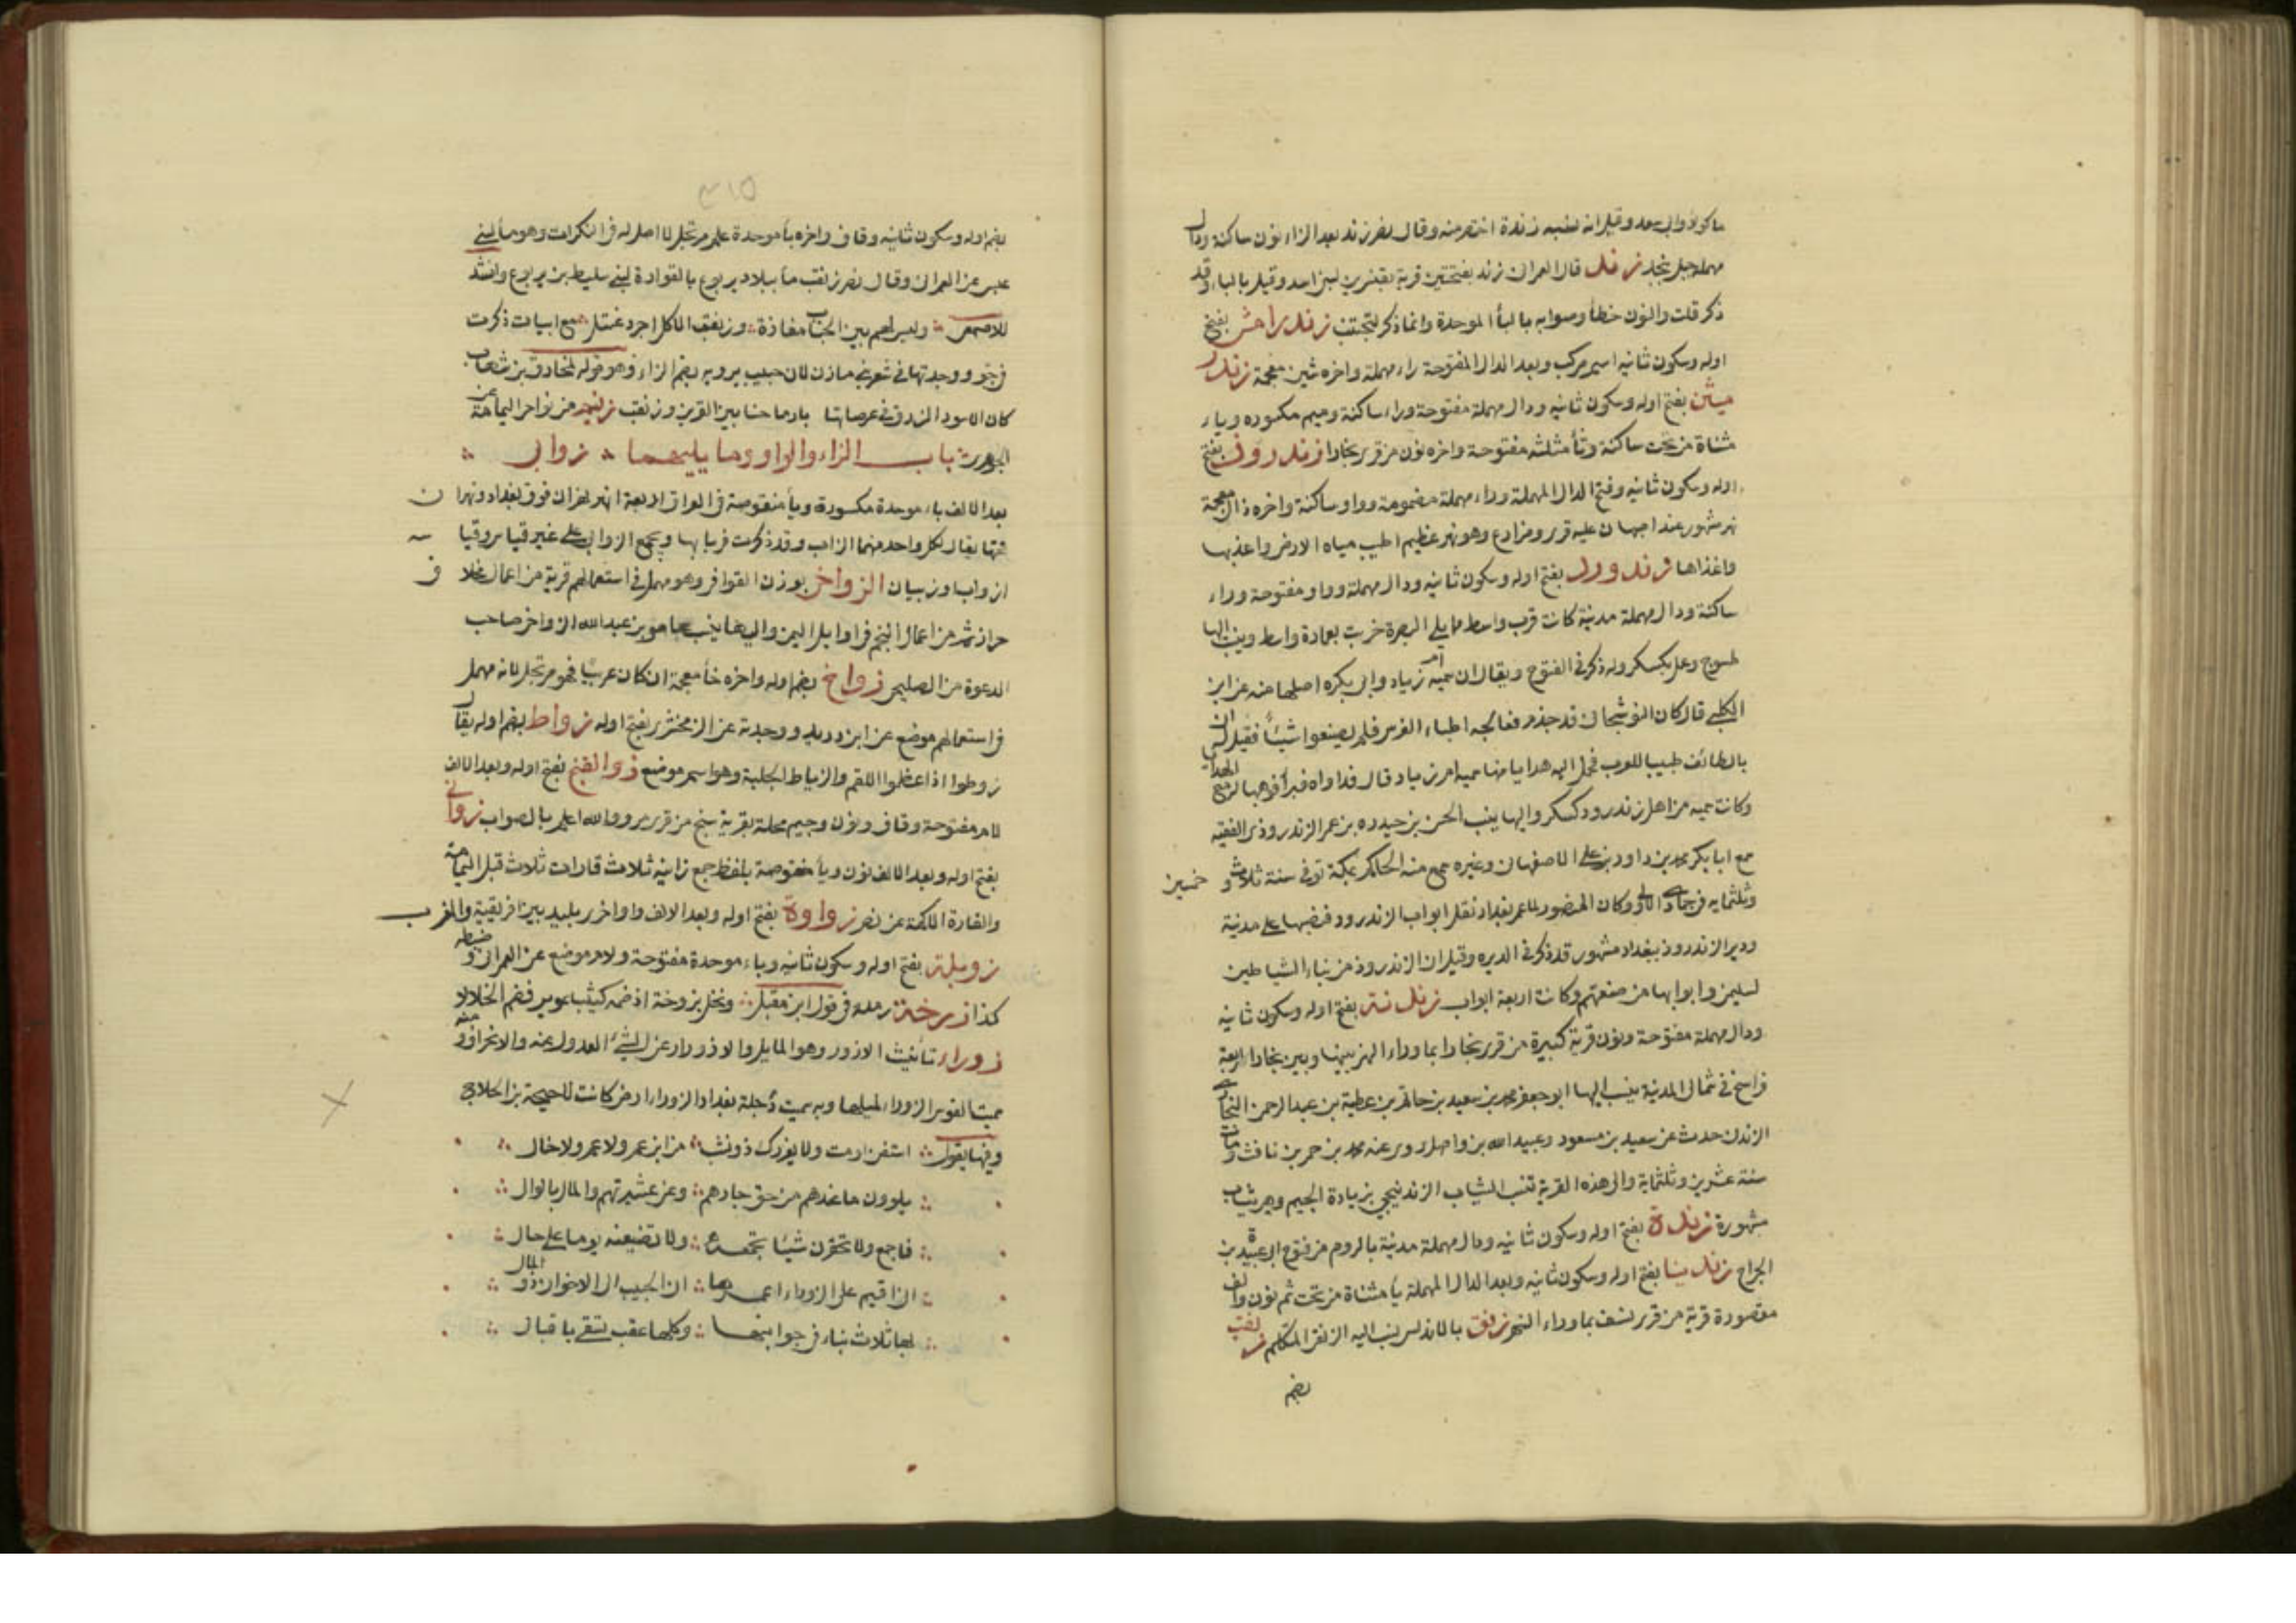 مهملة جبل بنجد زند قال العمراني زند بفتحتين قرية بقنسرين لبني اسد وقيل بالباء وقد
ذكر قلت والنون خطأ وصوابه بالبأ الموحدة وانما ذكر لتجتنب زندرامش بفتح
اوله وسكون ثانيه اسم مركب وبعد الدال المفتوحة راء مهملة واخره شين معجمة زندر
ميثن بفتح اوله وسكون ثانيه ودال مهملة مفتوحة وراء ساكنة وميم مكسوره وياء
مثناة من تحت ساكنة وثأ مثلثه مفتوحة واخره نون من قرى بخارا زندروذ بفتح
اوله وسكون ثانيه وفتح الدال المهملة وراء مهملة مضمومة وواو ساكنة واخره ذال معجمة
نهر مشهور عند اصبهان عليه قرى ومزارع وهو نهر عظيم اطيب مياه الارض واعذبها
واغذاها زندورد بفتح اوله وسكون ثانيه ودال مهملة وواو مفتوحة وراء
ساكنة ودال مهملة مدينة كانت قرب واسط مما يلي البصرة خربت بعمارة واسط وينسب اليها
طسوج وعمل بكسكر وله ذكر في الفتوح ويقال ان سميه ام زياد وابي بكره اصلها منه عن ابن
الكلبي قال كان النوشجان قد جذم فعالجه اطباء الفرس فلم يصنعوا شيئاً فقيل له ان
بالطائف طبيبا للعرب فحمل اليه هدايا منها سميه ام زياد قال فداواه فبرأ فوهبها له مع الهدايا
وكانت سميه من اهل زندرود كسكر واليها ينسب الحسن بن حيدره بن عمر الزندروذى الفقيه
سمع ابا بكر محمد بن داود بن علي الاصفهاني وغيره سمع منه الحاكم بمكة توفى سنة ثلاث و خمسين
وثلثمايه في جمادى الاولى وكان المنصور لما عمر بغداد نقل ابواب الزندرود فنصبها على مدينة
ودير الزندروذ ببغداد مشهور قد ذكر في الديره وقيل ان الزندروذ من بناء الشياطين
لسليمن وابوابها من صنعتهم وكانت اربعة ابواب زندنة بفتح اوله وسكون ثانيه
ودال مهملة مفتوحة ونون قرية كبيرة من قرى بخارا بما وراء النهر بينها وبين بخارا اربعة
فراسخ في شمال المدينة ينسب اليها ابو جعفر محمد بن سعيد بن حاتم بن عطية بن عبد الرحمن البخارى
الزندنى حدث عن سعيد بن مسعود وعبيد الله بن واصل روى عنه محمد بن حمر بن نافث ومات
سنة عشرين وثلثماية والى هذه القرية تنسب الثياب الزندنيجي بزيادة الجيم وهي ثياب
مشهورة زندة بفتح اوله وسكون ثانيه ودال مهملة مدينة بالروم من فتوح ابى عبيدة بن
الجراح زندينا بفتح اوله وسكون ثانيه وبعد الدال المهملة يا مثناة من تحت ثم نون والف
مقصورة قرية من قرى نسف بما وراء النهر زنق بالاندلس ينسب اليه الزنقى المتكلم زنقب
بضم
٣١٥
بضم اوله وسكون ثانيه وقاف واخره بأ موحدة علم مرتجل لا اصل له في النكرات وهو مأ لبنى
عبس عن العمرانى وقال نصر زنقب مأ ببلاد يربوع بالقوادة لبنى سليط بن يربوع وانشد
للاصمعى وليس لهم بين الجناب مفازة وزنقب الا كل اجرد عنتل مع ابيات ذكرت
في جو ووجدتها في شعر بنى مازن لابن حبيب يرويه بضم الزاء وهو قوله لمخارق بن شهاب
كان الاسود الزرق في عرصاتها بارماحنا بين القرين وزنقب زنيم من نواحى اليمامة عن
الجوهرى باب الزاء والواو وما يليهما زوابى
بعد الالف باء موحدة مكسورة ويأ منقوصة في العراق اربعة انهر نهران فوق بغداد ونهران
تحتها يقال لكل واحد منهما الزاب وقد ذكرت في بابها وتجمع الزوابى على غير قياس وقياسه
ازواب او زيبان الزواخى بوزن القوافي وهو مهمل في استعمالهم قرية من اعمال مخلاف
حراز ثم من اعمال النجم في اوايل اليمن والى هنا ينسب عامر بن عبد الله الزواخى صاحب
الدعوة من الصليحى زواخ بضم اوله واخره خأ معجمة ان كان عربيًا فهو مرتجل لانه مهمل
في استعمالهم موضع عن ابن دريد ووجدته عن الزمخشرى بفتح اوله زواط بضم اوله يقال
زوطوا اذا عظموا اللقم والزياط الجلبة وهو اسم موضع زوالقنج بفتح اوله وبعد الالف
لام مفتوحة وقاف ونون وجيم محلة بقرية سنج من قرى مرو والله اعلم بالصواب زوانى
بفتح اوله وبعد الالف نون ويأ منقوصة بلفظ جمع زانيه ثلاث قارات ثلاث قبل اليمامة
والقارة الاكمة عن نصر زواوة بفتح اوله وبعد الالف واو اخرى بليد بين افريقية والمغرب
زوبلة بفتح اوله وسكون ثانيه وباء موحدة مفتوحة ولام موضع عن العمرانى وضبطه
كذا زوخة رمله في قول ابن مقبل ونخل بزوخة اذ ضمه كثيبا عوير فضم الخلالا
زوراء تأنيث الازور وهو المايل والازورار عن الشئ العدول عنه والانحراف ومنه
سميت القوس الزوراء لميلها وبه سميت دجلة بغداد الزوراء ارض كانت لاحيحة بن الجلاح
وفيها يقول استغن او مت ولا يغررك ذو نشب من ابن عم ولا عم ولا خال
يلوون ما عندهم من حق جارهم وعن عشيرتهم والمال بالوال
فاجمع ولا تحقرن شيئا تجمعه ولا تضيعنه يوما على حال
انى اقيم على الزوراء اعمرها ان الحبيب الى الاخوان ذو المال
لها ثلاث بناء في جوانبها وكلها عقب تسقى باقبال